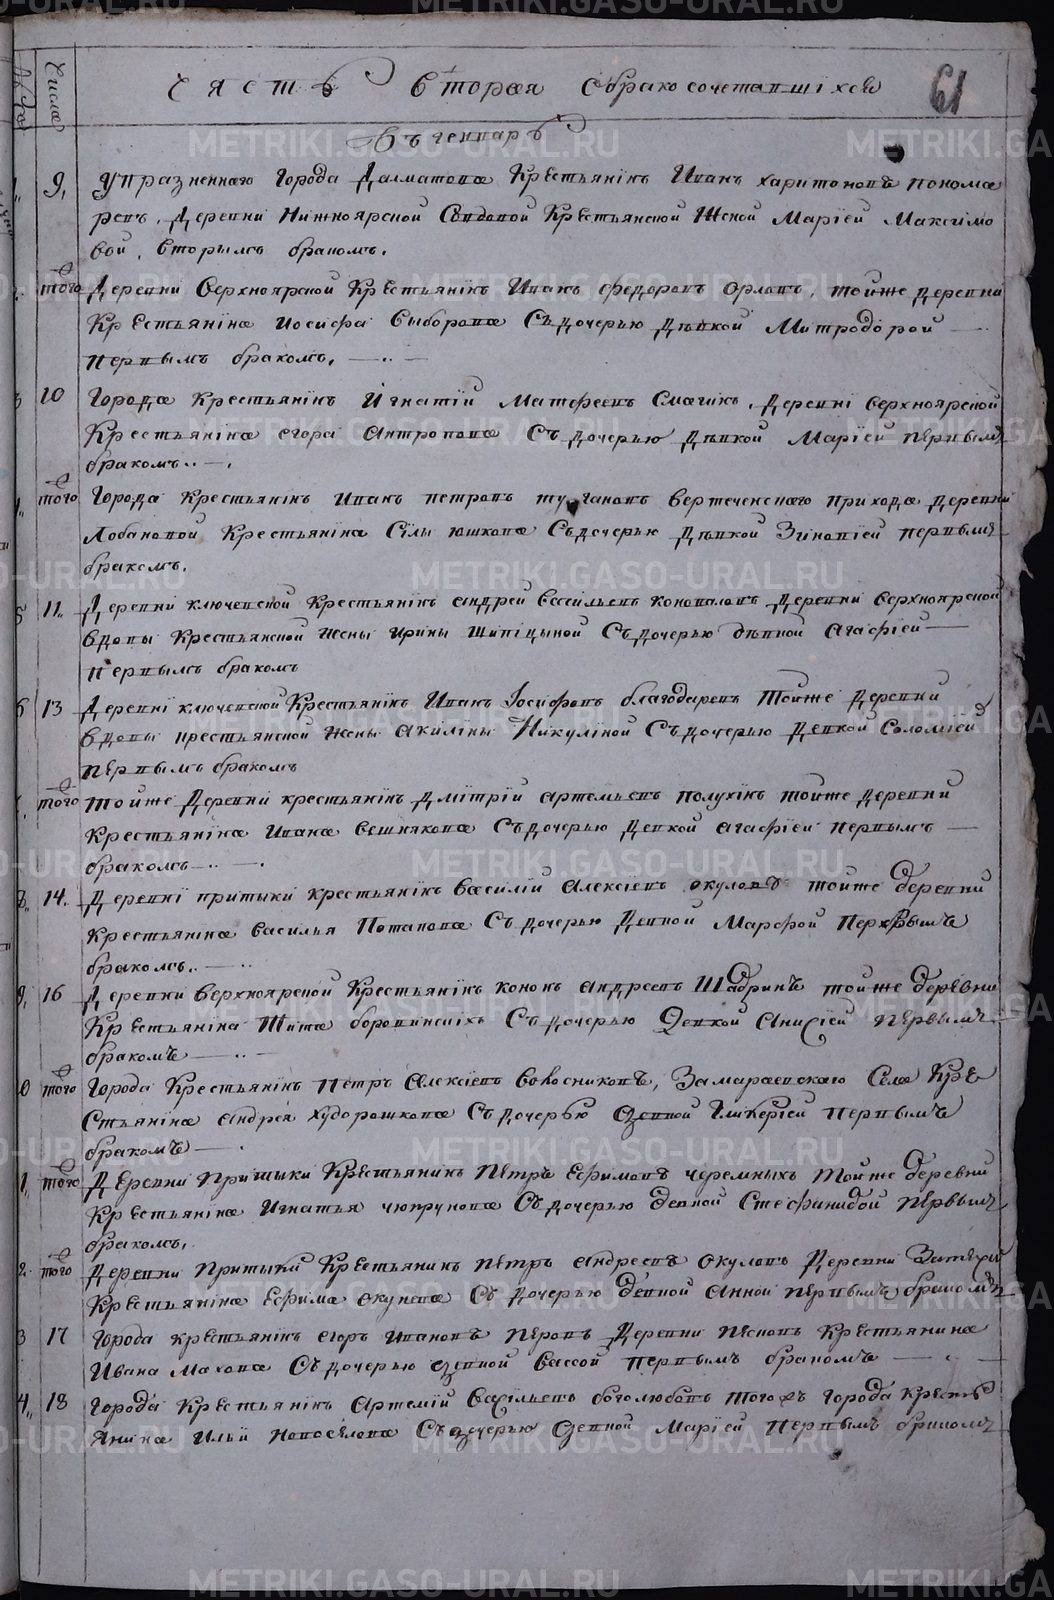 Часть вторая о бракосочетавшихся
61
Числа
Въ генваре
9, Упраздненнаго города Далматова Крестьянинъ Иванъ Харитоновъ Понома
ревъ, Деревни Нижноярской Крестьянской Женой Марїей Максимо
вой, вторымъ бракомъ.
того Деревни Верхноярской Крестьянинъ Иванъ Федоровъ Орловъ, тойже деревни
Крестьянина Иосифа Выборова Съ дочерью Дѣвкой Митродорой
первымъ бракомъ.
3 10 Города Крестьянинъ Игнатїй Матфеевъ Смагинъ, Деревни Верхноярской
Крестьянина Егора Антропова Съ дочерью Дѣвкой Марїей первымъ
бракомъ.
4 того Города Крестьянинъ Иванъ Петровъ Вертеченскаго прихода деревни
Лобановой Крестьянина Силы Юшкова Съ дочерью Дѣвкой Зиновїей первымъ
бракомъ.
5 11. Деревни Ключевской Крестьянинъ Андрей Васильевъ Коноваловъ Деревни Верхноярской
Вдовы Крестьянской жены Ирины Шипицыной Съ дочерью дѣвкой Агафїей
первымъ бракомъ
6 13 Деревни Ключевской Крестьянинъ Иванъ Іосифовъ Благодаревъ Тойже Деревни
Вдовы крестьянской жены Акилины Никулїной Съ дочерью Девкой Соломїей
первымъ бракомъ
того тойже Деревни крестьянинъ Дмїтрїй Артемьевъ Полухинъ тойже деревни
Крестьянина Ивана Вешнякова Съ дочерью Девкой Агафїей первымъ
бракомъ
8. 14. Деревни Притыки крестьянинъ Василїй Алексїевъ Окуловъ тойже деревни
Крестьянина Василья Потапова Съ дочерью Девкой Марфой Первымъ
бракомъ.
9, 16 Деревни Верхноярской Крестьянинъ Кононъ Андреевъ Шадринъ тойже деревни
Крестьянина Тита Съ дочерью Девкой Анисїей первымъ
бракомъ
0 того Города Крестьянинъ Петръ Алексїевъ, Замараевскаго Села Кре
стьянина Андрея Худорошкова Съ дочерью девкой Гликерїей первымъ
бракомъ
1, того Деревни Притыки Крестьянинъ Петръ Ефимовъ Черемныхъ тойже деревни
Крестьянина Игнатья Чюпрунова Съ дочерью девкой Стефанидой первымъ
бракомъ.
2. того Деревни Притыки Крестьянинъ Петръ Андреевъ Окуловъ Деревни
Крестьянина Ефима Окунева Съ дочерью девкой Анной первымъ бракомъ
3 17 Города крестьянинъ Егоръ Ивановъ Перовъ Деревни Крестьянина
Ивана Махова Съ дочерью девкой Вассой первымъ бракомъ
4, 18 Города Крестьянинъ Артемїй Васильевъ Боголюбовъ того ж города Кресть
янина Ильи Новосїлова Съ дочерью девкой Марїей Первымъ бракомъ
METRIKI.GASO-URAL.RU